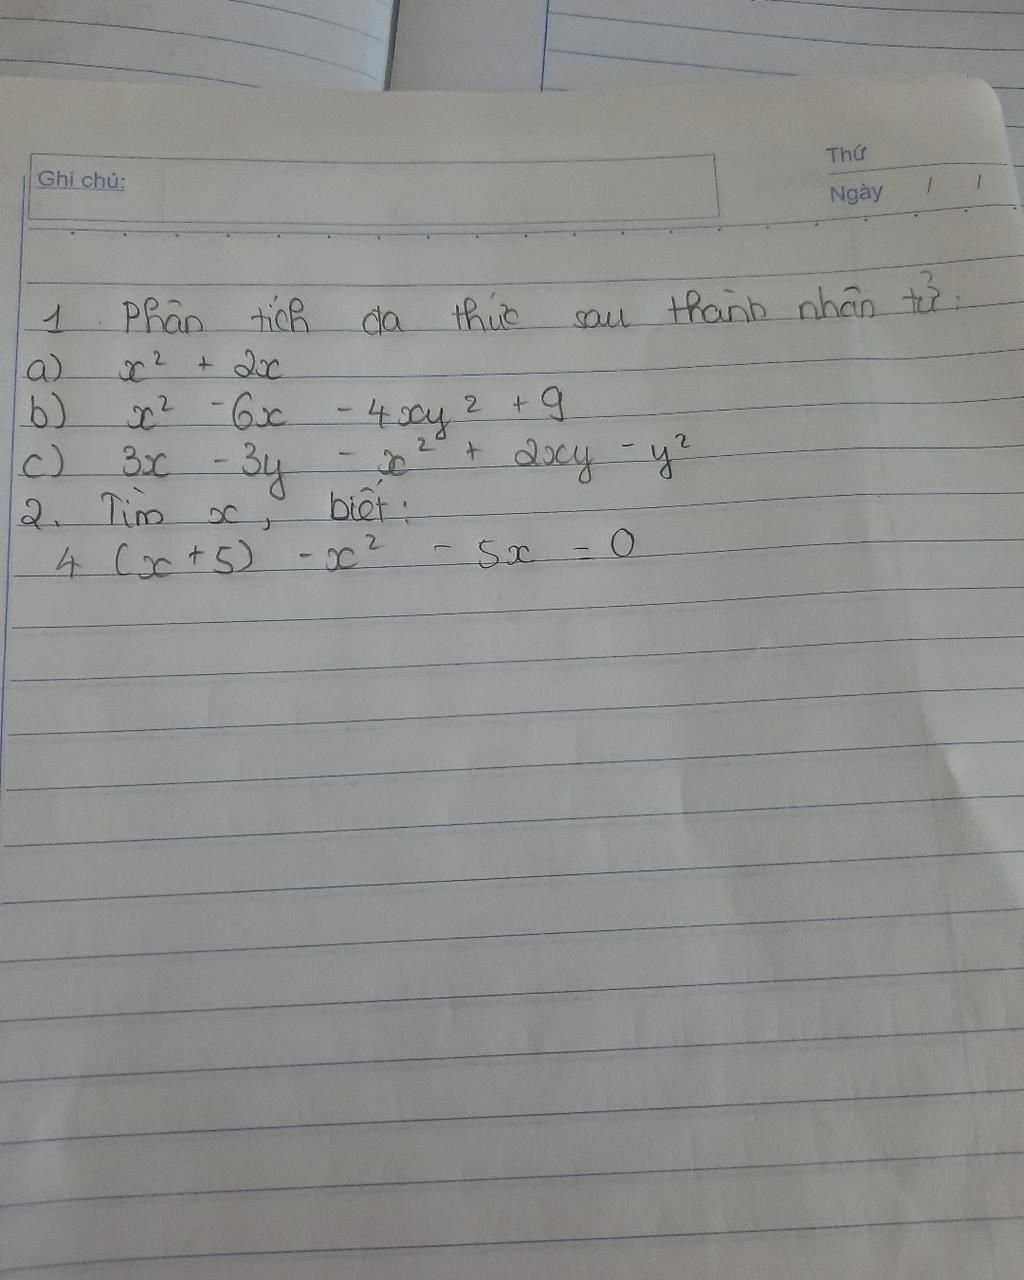 Ghi chú:
Thứ
Ngày / /
1 Phân tích đa thức sau thành nhân tử:
a) x² + 2x
b) x² - 6x - 4xy² + 9
c) 3x - 3y - x² + 2xy - y²
2. Tìm x, biết:
4 (x+5) - x² - 5x = 0